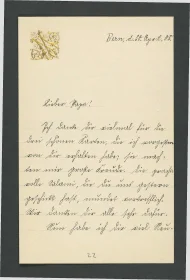 Bern, d. 28. April. 05.
Lieber Papa!
Ich danke dir vielmal für die
drei schönen Karten, die ich vorgestern
von dir erhalten habe; sie mach-
ten mir große Freude. Die pracht-
volle Salami, die du uns gestern
geschickt hast, mundet vortrefflich.
Wir danken dir alle sehr dafür.
Nun habe ich dir viel Neu-